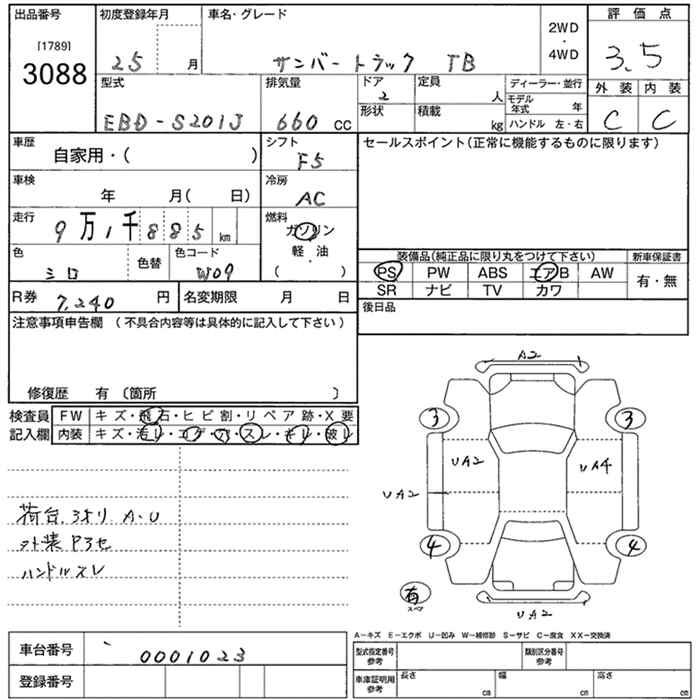 出品番号 初度登録年月 車名・グレード 評価点
[1789]
3088
25 月 サンバートラック TB 2WD ・ 4WD 3.5
型式 排気量 ドア 定員 ディーラー・並行 外装 内装
2 人 モデル年式 年
EBD-S201J 660 cc 形状 積載 kg ハンドル 左・右 C C
車歴 シフト セールスポイント(正常に機能するものに限ります)
自家用・( ) F5
車検 冷房
年 月( 日) AC
走行 燃料
9万1千885km ガソリン
軽・油
( )
色 色替 色コード 装備品(純正品に限り丸をつけて下さい) 新車保証書
シロ W09 PS PW ABS エアB AW 有・無
SR ナビ TV カワ
R券 7,240 円 名変期限 月 日 後日品
注意事項申告欄 (不具合内容等は具体的に記入して下さい)
修復歴 有 〔箇所 〕
検査員 FW キズ・飛石・ヒビ割・リペア跡・X要
記入欄 内装 キズ・汚レ・コゲ・穴・スレ・キレ・破レ
荷台.3オリ A.U
外装 P3セ
ハンドルスレ
A2
3 3
UA2 UA4
UA2
4 4
有
スペア
UA2
A-キズ E-エクボ U-凹み W-補修跡 S-サビ C-腐食 XX-交換済
車台番号 0001023 型式指定番号 参考 類別区分番号 参考
登録番号 車庫証明用 参考 長さ cm 幅 cm 高さ cm